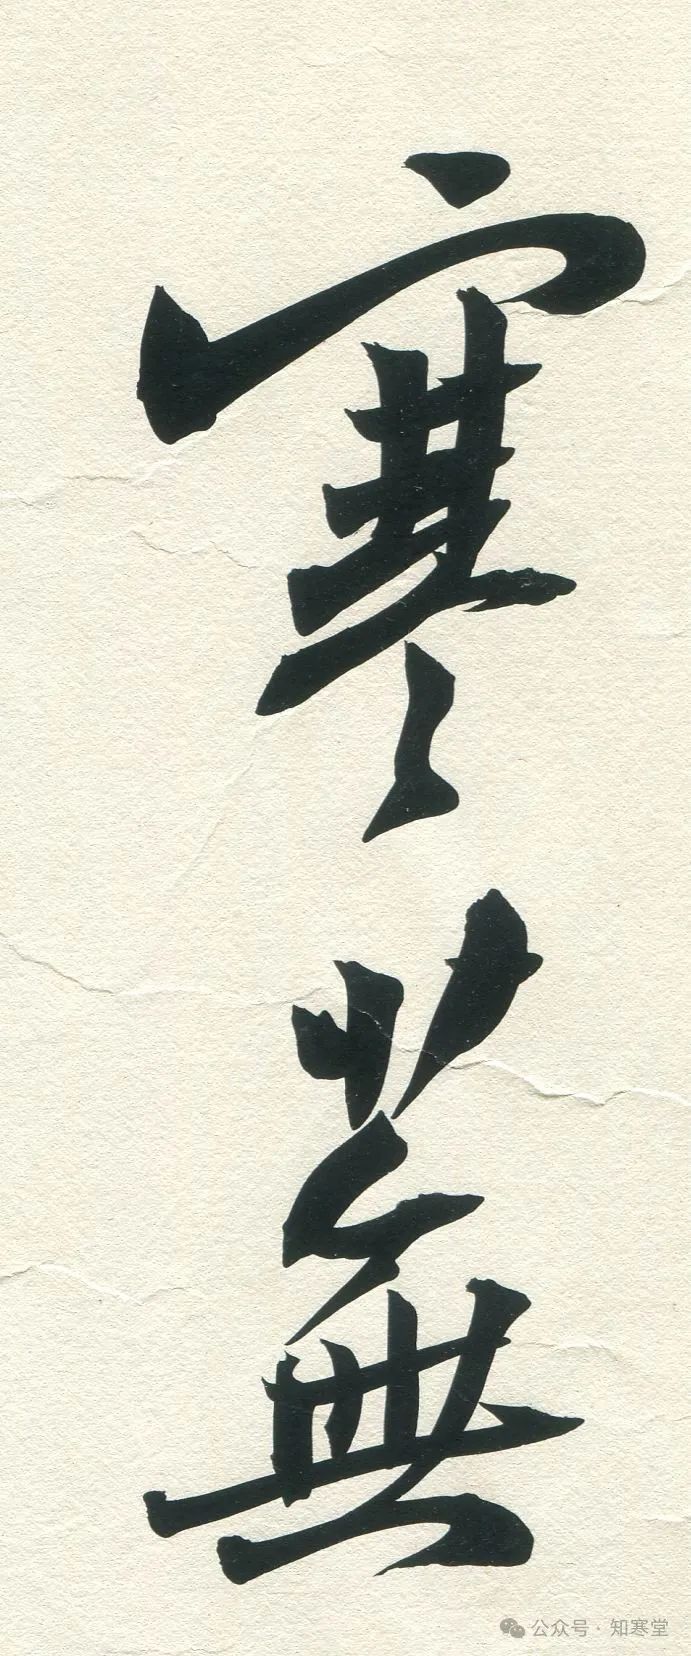 寒蕪
公众号·知寒堂